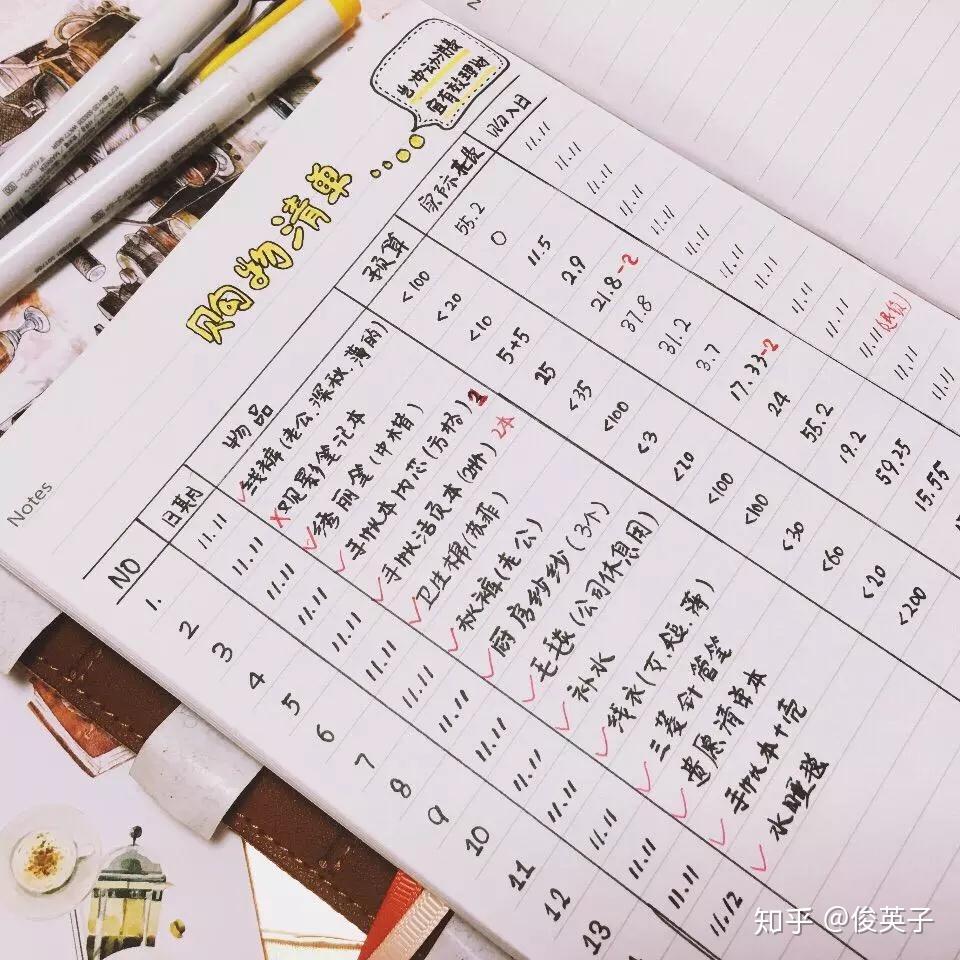 Notes
忌冲动消费
宜有效理财
购物清单....
NO 日期 物品 预算 实际花费 购入日
1. 11.11 线裤(老公,深秋,薄的) <100 55.2 11.11
2 11.11 观影笔记本 <20 0 11.11
3 11.11 绣丽笔(中楷) <10 11.5 11.11
4 11.11 手帐本内芯(方格)2 5+5 2.9 11.11
5 11.11 手帐活页本 2本 15 21.8-2 11.11
6 11.11 卫生棉(苏菲) <35 37.8 11.11
7 11.11 秋裤(老公) <100 31.2 11.11
8 11.11 厨房纱纱(3个) <3 3.7 11.11
9 11.11 毛毯(公司休息用) <20 17.33-2 11.11
10 11.11 补水 <100 24 11.11
11 11.11 线衣(女短薄) <100 55.2 11.11
12 11.11 三菱针管笔 <30 19.2 11.11
13 11.11 遗愿清单本 <60 59.25 11.11
11.11 手帐本+壳 <20 15.55
11.12 <200
知乎 @俊英子